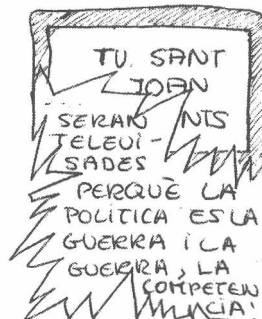 TU SANT
JOAN
SERAN NITS
TELEVI-
SADES
PERQUÈ LA
POLÍTICA ES LA
GUERRA i LA
GUERRA, LA
COMPETEN
CIA!